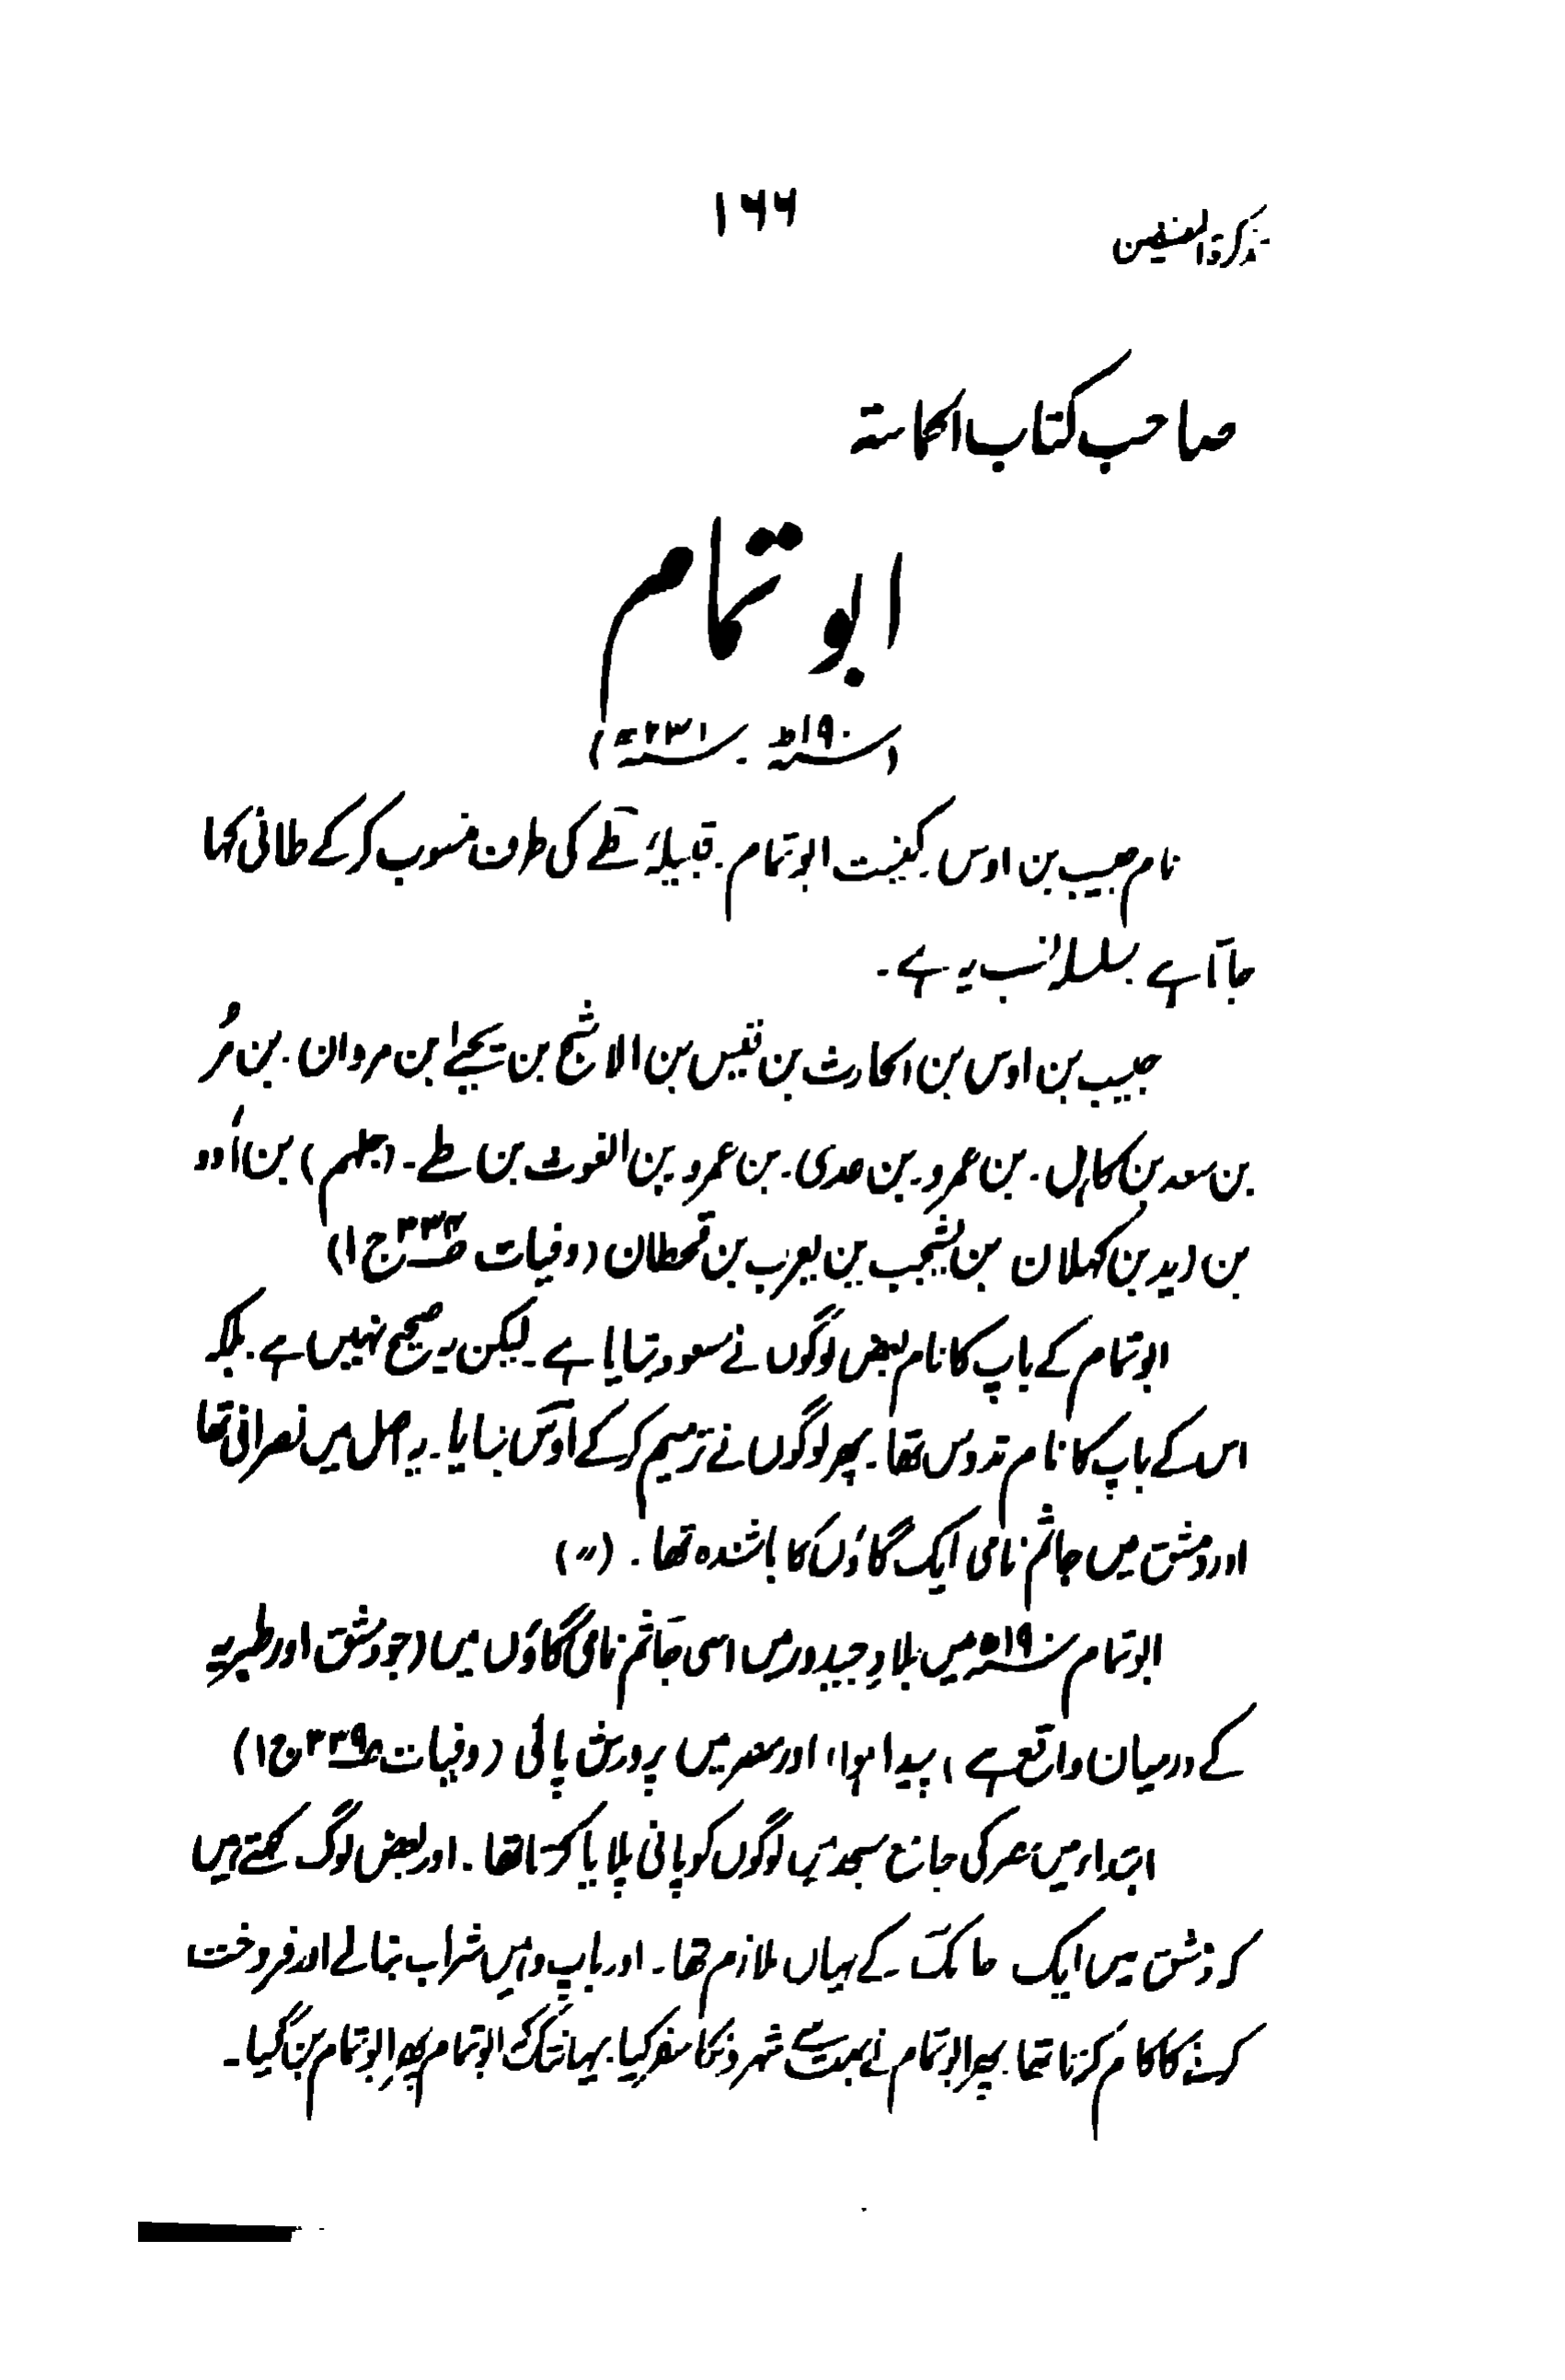 تذکرۃ المصنفین
۱۶۶
صاحب کتاب الحماستہ
ابو تمام
(سنہ ۱۹۰ھ ۔ سنہ ۲۳۱ھ)
نام حبیب بن اوس کینیت ابوتمام ۔ قبیلۂ طے کی طرف منسوب کرکے طائی کہا
جاتا ہے سلسلۂ نسب یہ ہے ۔
حبیب بن اوس بن الحارث بن قیس بن الاشج بن یحییٰ بن مروان ۔ بن مُر
بن سعد بن کاہل ۔ بن عمرو ۔ بن عدی ۔ بن عمرو بن الغوث بن طے ۔ (جلہم) بن اُدد
بن زید بن کہلان بن یشجب بن یعرب بن قحطان (وفیات صـ۳۳۴ ج ۱)
ابوتمام کے باپ کا نام بعض لوگوں نے سعود بتایا ہے ۔ لیکن یہ صحیح نہیں ہے ۔ بلکہ
اس کے باپ کا نام تدوس تھا ۔ پھر لوگوں نے ترمیم کرکے اوس بنایا ۔ یہ اصل میں نصرانی تھا
اور دمشق میں جاثم نامی ایک گاؤں کا باشندہ تھا ۔ (〃)
ابوتمام سنہ ۱۹۰ھ میں بلادِ جیدور میں اسی جاثم نامی گاؤں میں (جو دمشق اور طبریہ
کے درمیان واقع ہے) پیدا ہوا، اور مصر میں پرورش پائی (وفیات صـ۳۳۹ ج ۱)
ابتداء میں مصر کی جامع مسجد میں لوگوں کو پانی پلایا کرتا تھا ۔ اور بعض لوگ کہتے ہیں
کہ دمشق میں ایک حائک کے یہاں ملازم تھا ۔ اور باپ وہیں شراب بنانے اور فروخت
کرنے کا کام کرتا تھا ۔ پھر ابوتمام نے بہت سے شہروں کا سفر کیا ۔ یہانتک کہ ابوتمام پھر ابوتمام بن گیا ۔